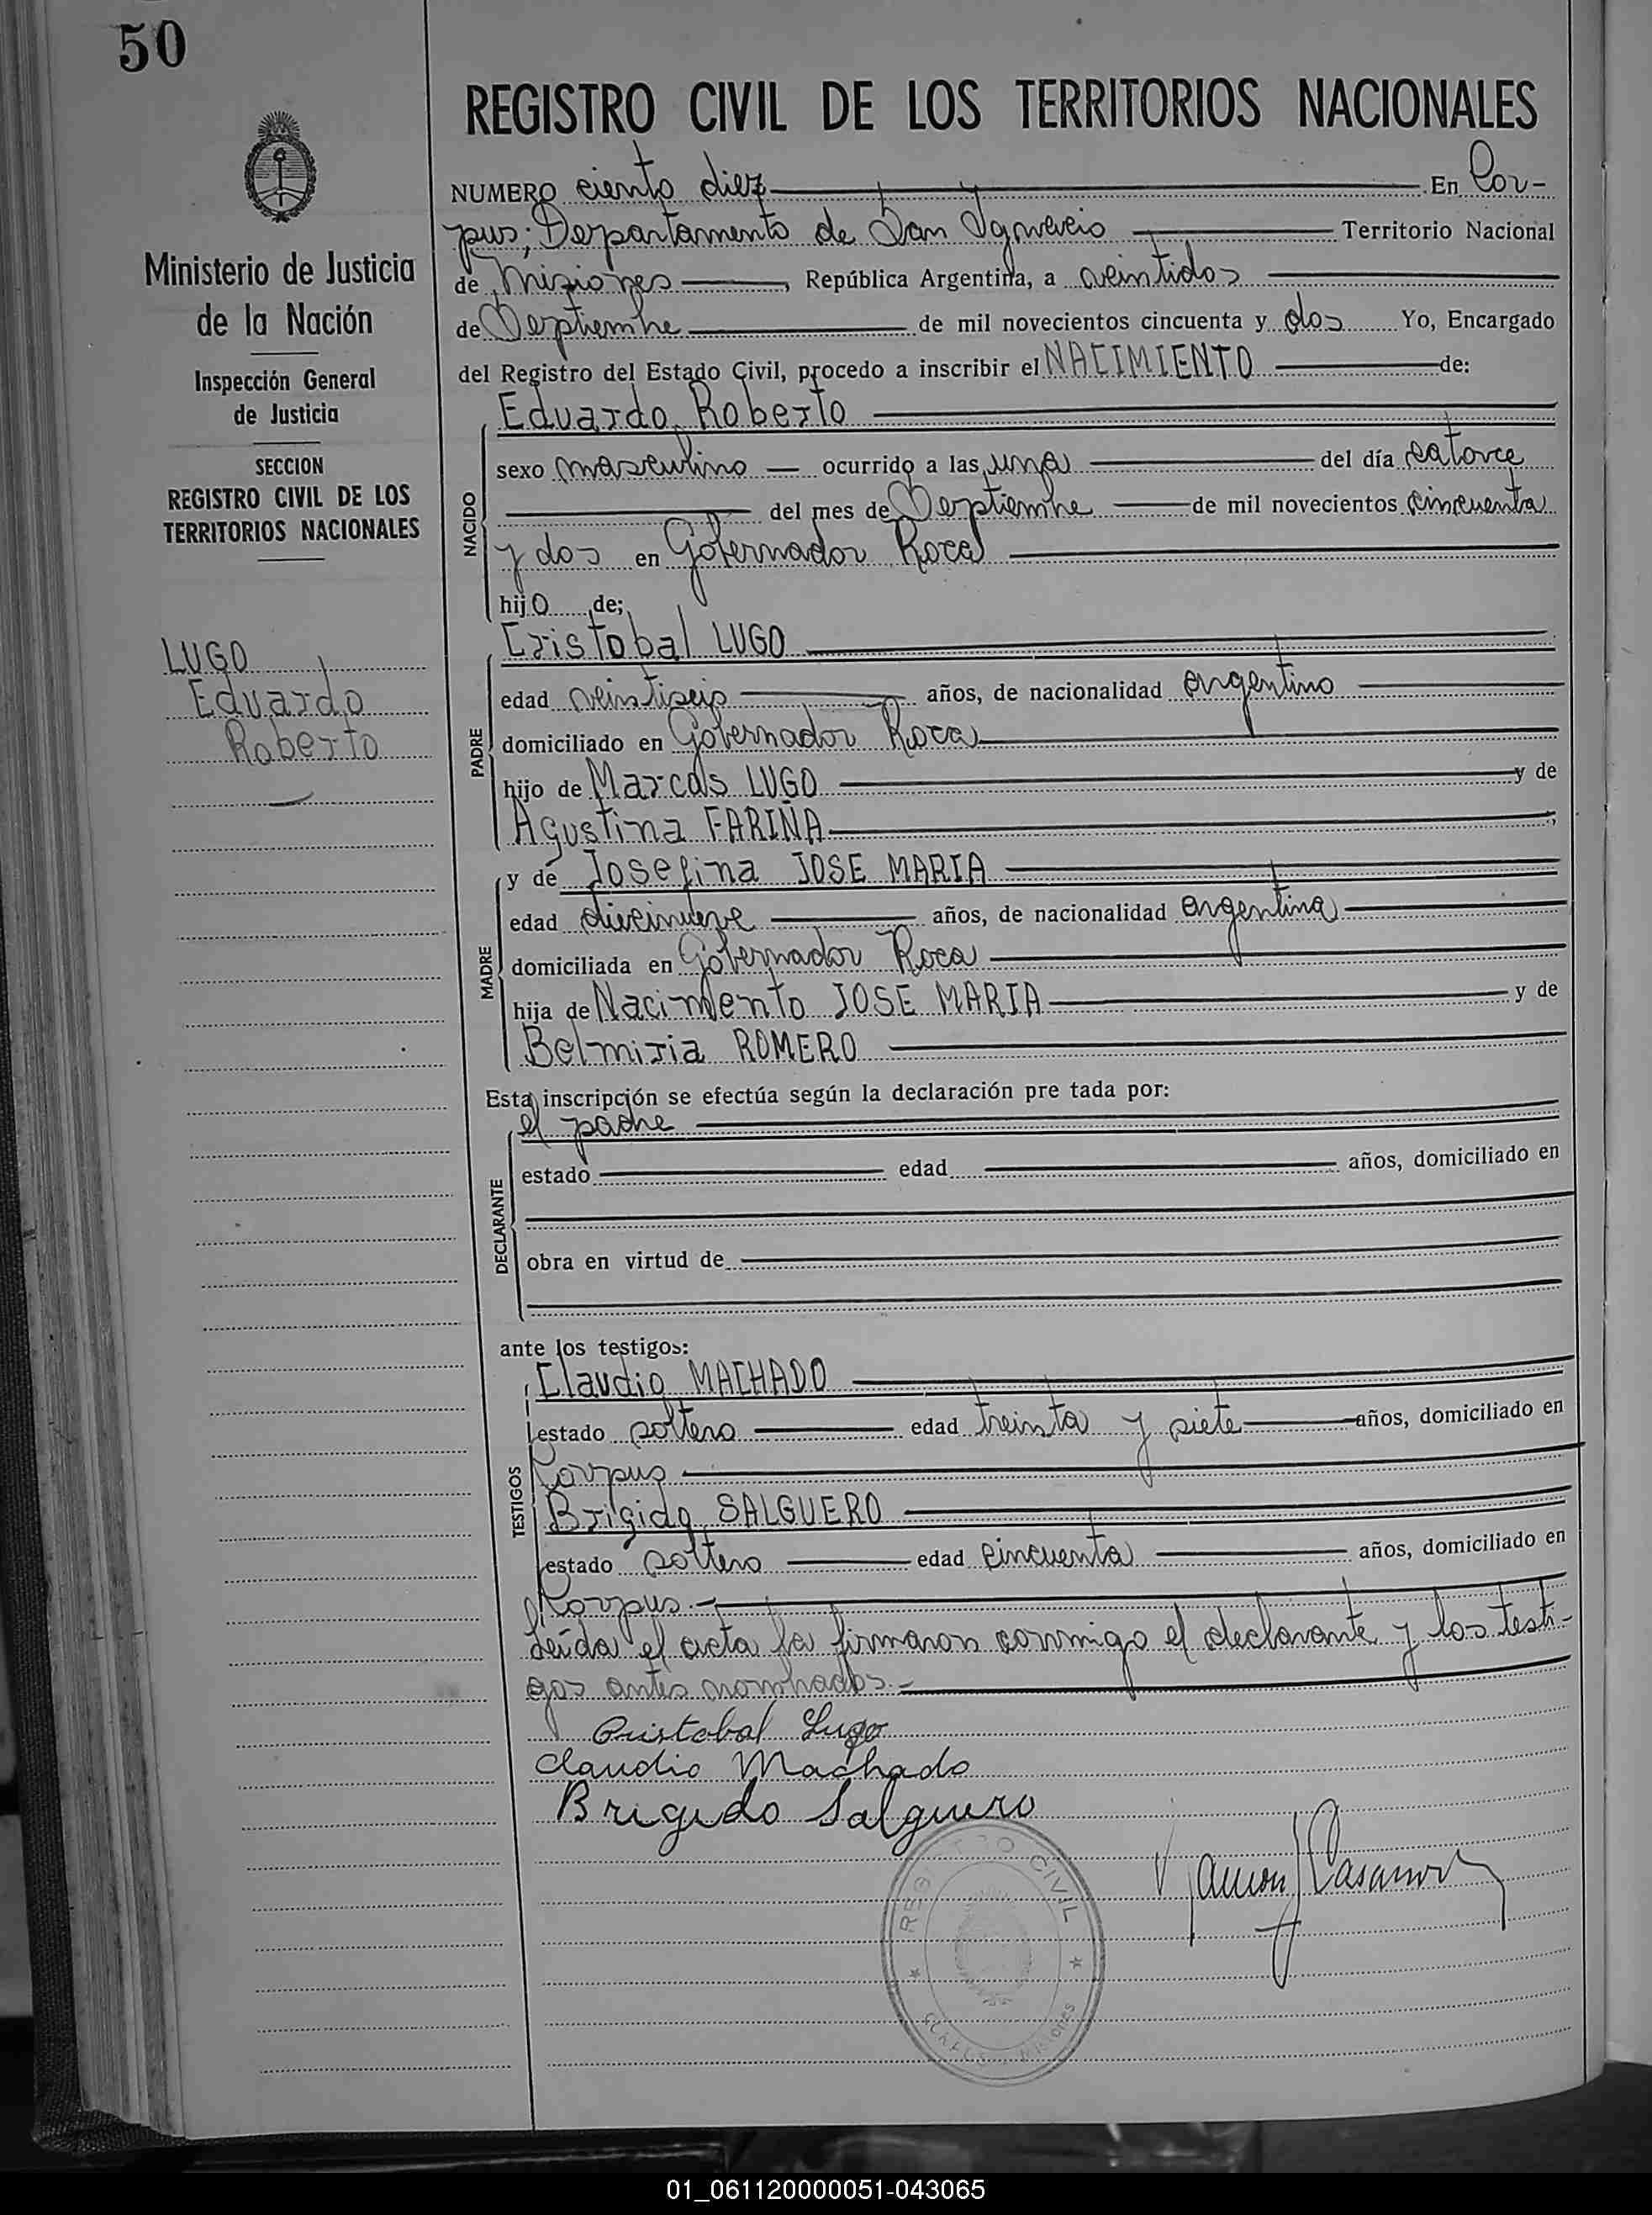 50
REGISTRO CIVIL DE LOS TERRITORIOS NACIONALES
Ministerio de Justicia
de la Nación
Inspección General
de Justicia
SECCION
REGISTRO CIVIL DE LOS
TERRITORIOS NACIONALES
LUGO
Eduardo
Roberto
NUMERO ciento diez En Cor-
pus; Departamento de San Ygnacio Territorio Nacional
de Misiones, República Argentina, a veintidos
de Septiembre de mil novecientos cincuenta y dos Yo, Encargado
del Registro del Estado Civil, procedo a inscribir el NACIMIENTO de:
Eduardo Roberto
NACIDO
sexo masculino ocurrido a las una del día catorce
del mes de Septiembre de mil novecientos cincuenta
y dos en Gobernador Roca
hijo de;
Cristobal LUGO
PADRE
edad veintiseis años, de nacionalidad argentino
domiciliado en Gobernador Roca
hijo de Marcos LUGO y de
Agustina FARIÑA
y de Josefina JOSE MARIA
MADRE
edad diecinueve años, de nacionalidad argentina
domiciliada en Gobernador Roca
hija de Nacimento JOSE MARIA y de
Belmiria ROMERO
Esta inscripción se efectúa según la declaración pre tada por:
el padre
DECLARANTE
estado edad años, domiciliado en
obra en virtud de
ante los testigos:
Claudio MACHADO
TESTIGOS
estado soltero edad treinta y siete años, domiciliado en
Corpus
Brigido SALGUERO
estado soltero edad cincuenta años, domiciliado en
Corpus.-
Leída el acta la firmaron conmigo el declarante y los testi-
gos antes nombrados.-
Cristobal Lugo
Claudio Machado
Brigido Salguero
REGISTRO CIVIL
01_061120000051-043065